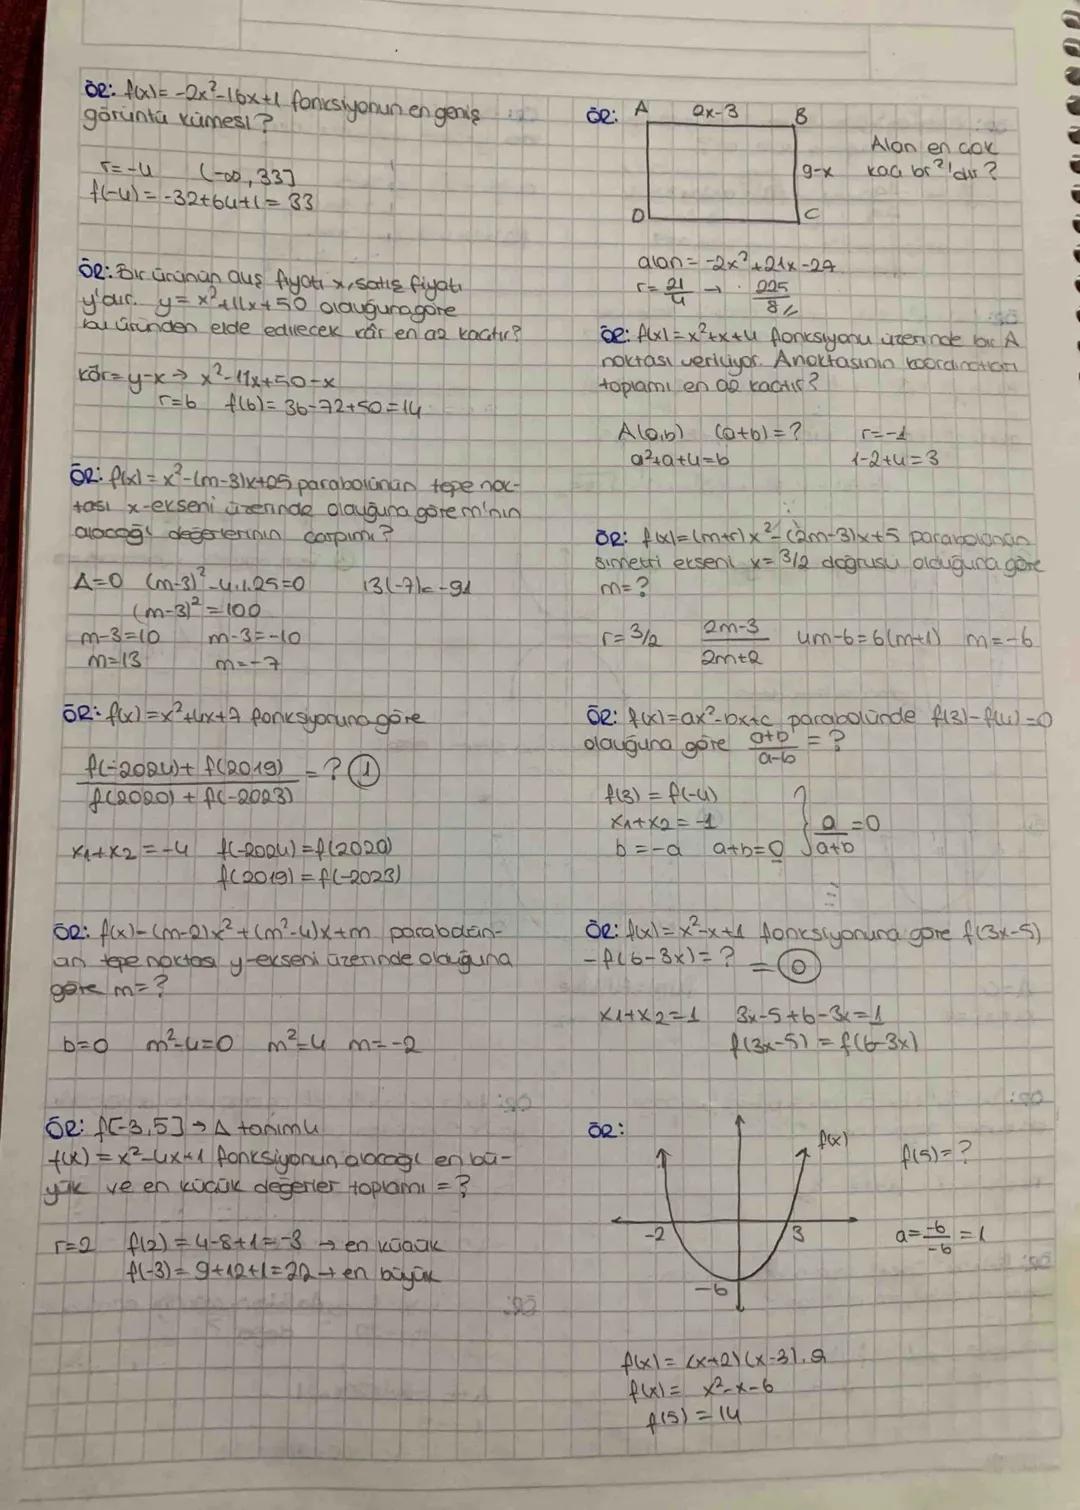 ÖR: f(x) = -2x²-16x+1 fonksiyonun en geniş
görüntü kümesi?
r=-4 (-∞, 33]
f(-4) = -32+64+1 = 33
ÖR: Bir ürünün alış fiyatı x, satış fiyatı
y'dir. y = x²-11x+50 olduğuna göre
bu üründen elde edilecek kâr en az kaçtır?
kâr = y-x → x²-11x+50-x
r=6 f(6) = 36-72+50=14
ÖR: f(x) = x²-(m-3)x+25 parabolünün tepe nok-
tası x-ekseni üzerinde olduğuna göre m'nin
alacağı değerlerinin çarpımı?
Δ=0 (m-3)²-4.1.25=0 13(-7)=-91
(m-3)² = 100
m-3=10 m-3=-10
m=13 m=-7
ÖR: f(x) = x²+4x+7 fonksiyonuna göre
f(-2024)+ f(2019) = ? (1)
f(2020) + f(-2023)
x1+x2 = -4 f(-2024) = f(2020)
f(2019) = f(-2023)
ÖR: f(x)-(m-2)x²+(m²-4)x+m parabolün-
ün tepe noktası y-ekseni üzerinde olduğuna
göre m=?
b=0 m²-4=0 m²=4 m=-2
ÖR: f[-3,5] → Δ tanımlı
f(x) = x²-4x+1 fonksiyonun alacağı en bü-
yük ve en küçük değerler toplamı = ?
r=2 f(2) = 4-8+1=-3 → en küçük
f(-3) = 9+12+1=22 → en büyük
ÖR: A 2x-3 B
Alan en çok
9-x kaç br²'dir?
D C
alan = -2x²+21x-27
r= 21/4 → 225/8
ÖR: f(x) = x²+x+4 fonksiyonu üzerinde bir A
noktası veriliyor. A noktasının koordinatları
toplamı en az kaçtır?
A(a,b) (a+b) = ? r=-1
a²+a+4=b 1-2+4=3
ÖR: f(x)=(m+1)x²-(2m-3)x+5 parabolünün
simetri ekseni x=3/2 doğrusu olduğuna göre
m=?
r=3/2 2m-3 4m-6=6(m+1) m=-6
2m+2
ÖR: f(x)=ax²-bx+c parabolünde f(3)-f(4)=0
olduğuna göre a+b = ?
a-b
f(3) = f(-4)
x1+x2 = -1 a =0
b=-a a+b=0 a+b
ÖR: f(x) = x²-x+1 fonksiyonuna göre f(3x-5)
-f(6-3x) = ? = 0
x1+x2=1 3x-5+6-3x=1
f(3x-5) = f(6-3x)
ÖR: f(x) f(5) = ?
-2 3 a= -6/-6 = 1
-6
f(x) = (x+2)(x-3).a
f(x) = x²-x-6
f(5) = 14